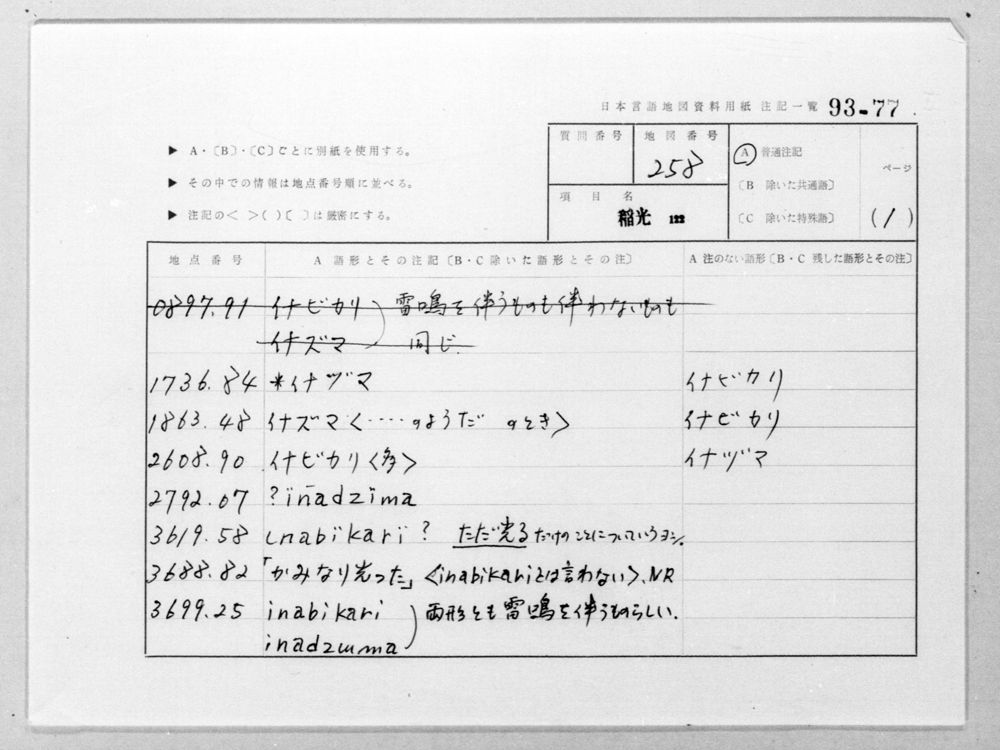 日本言語地図資料用紙 注記一覧 93-77
▶ A・〔B〕・〔C〕ごとに別紙を使用する。
▶ その中での情報は地点番号順に並べる。
▶ 注記の< >( )〔 〕は厳密にする。
質問番号 地図番号 258
項目名 稲光 122
A 普通注記
〔B 除いた共通語〕
〔C 除いた特殊語〕
ページ
(1)
地点番号 A 語形とその注記〔B・C 除いた語形とその注〕 A 注のない語形〔B・C 残した語形とその注〕
0897.91 イナビカリ 雷鳴を伴うものも伴わないものも
イナズマ) 同じ.
1736.84 *イナヅマ イナビカリ
1863.48 イナズマ<・・・・のようだ のとき> イナビカリ
2608.90 イナビカリ<多> イナヅマ
2792.07 ?inadzïma
3619.58 ɩnabïkarï? ただ光るだけのことについていう
3688.82 「かみなり光った」<inabikariとは言わない>、NR
3699.25 inabikari 両形とも雷鳴を伴うものらしい.
inadzɯma)